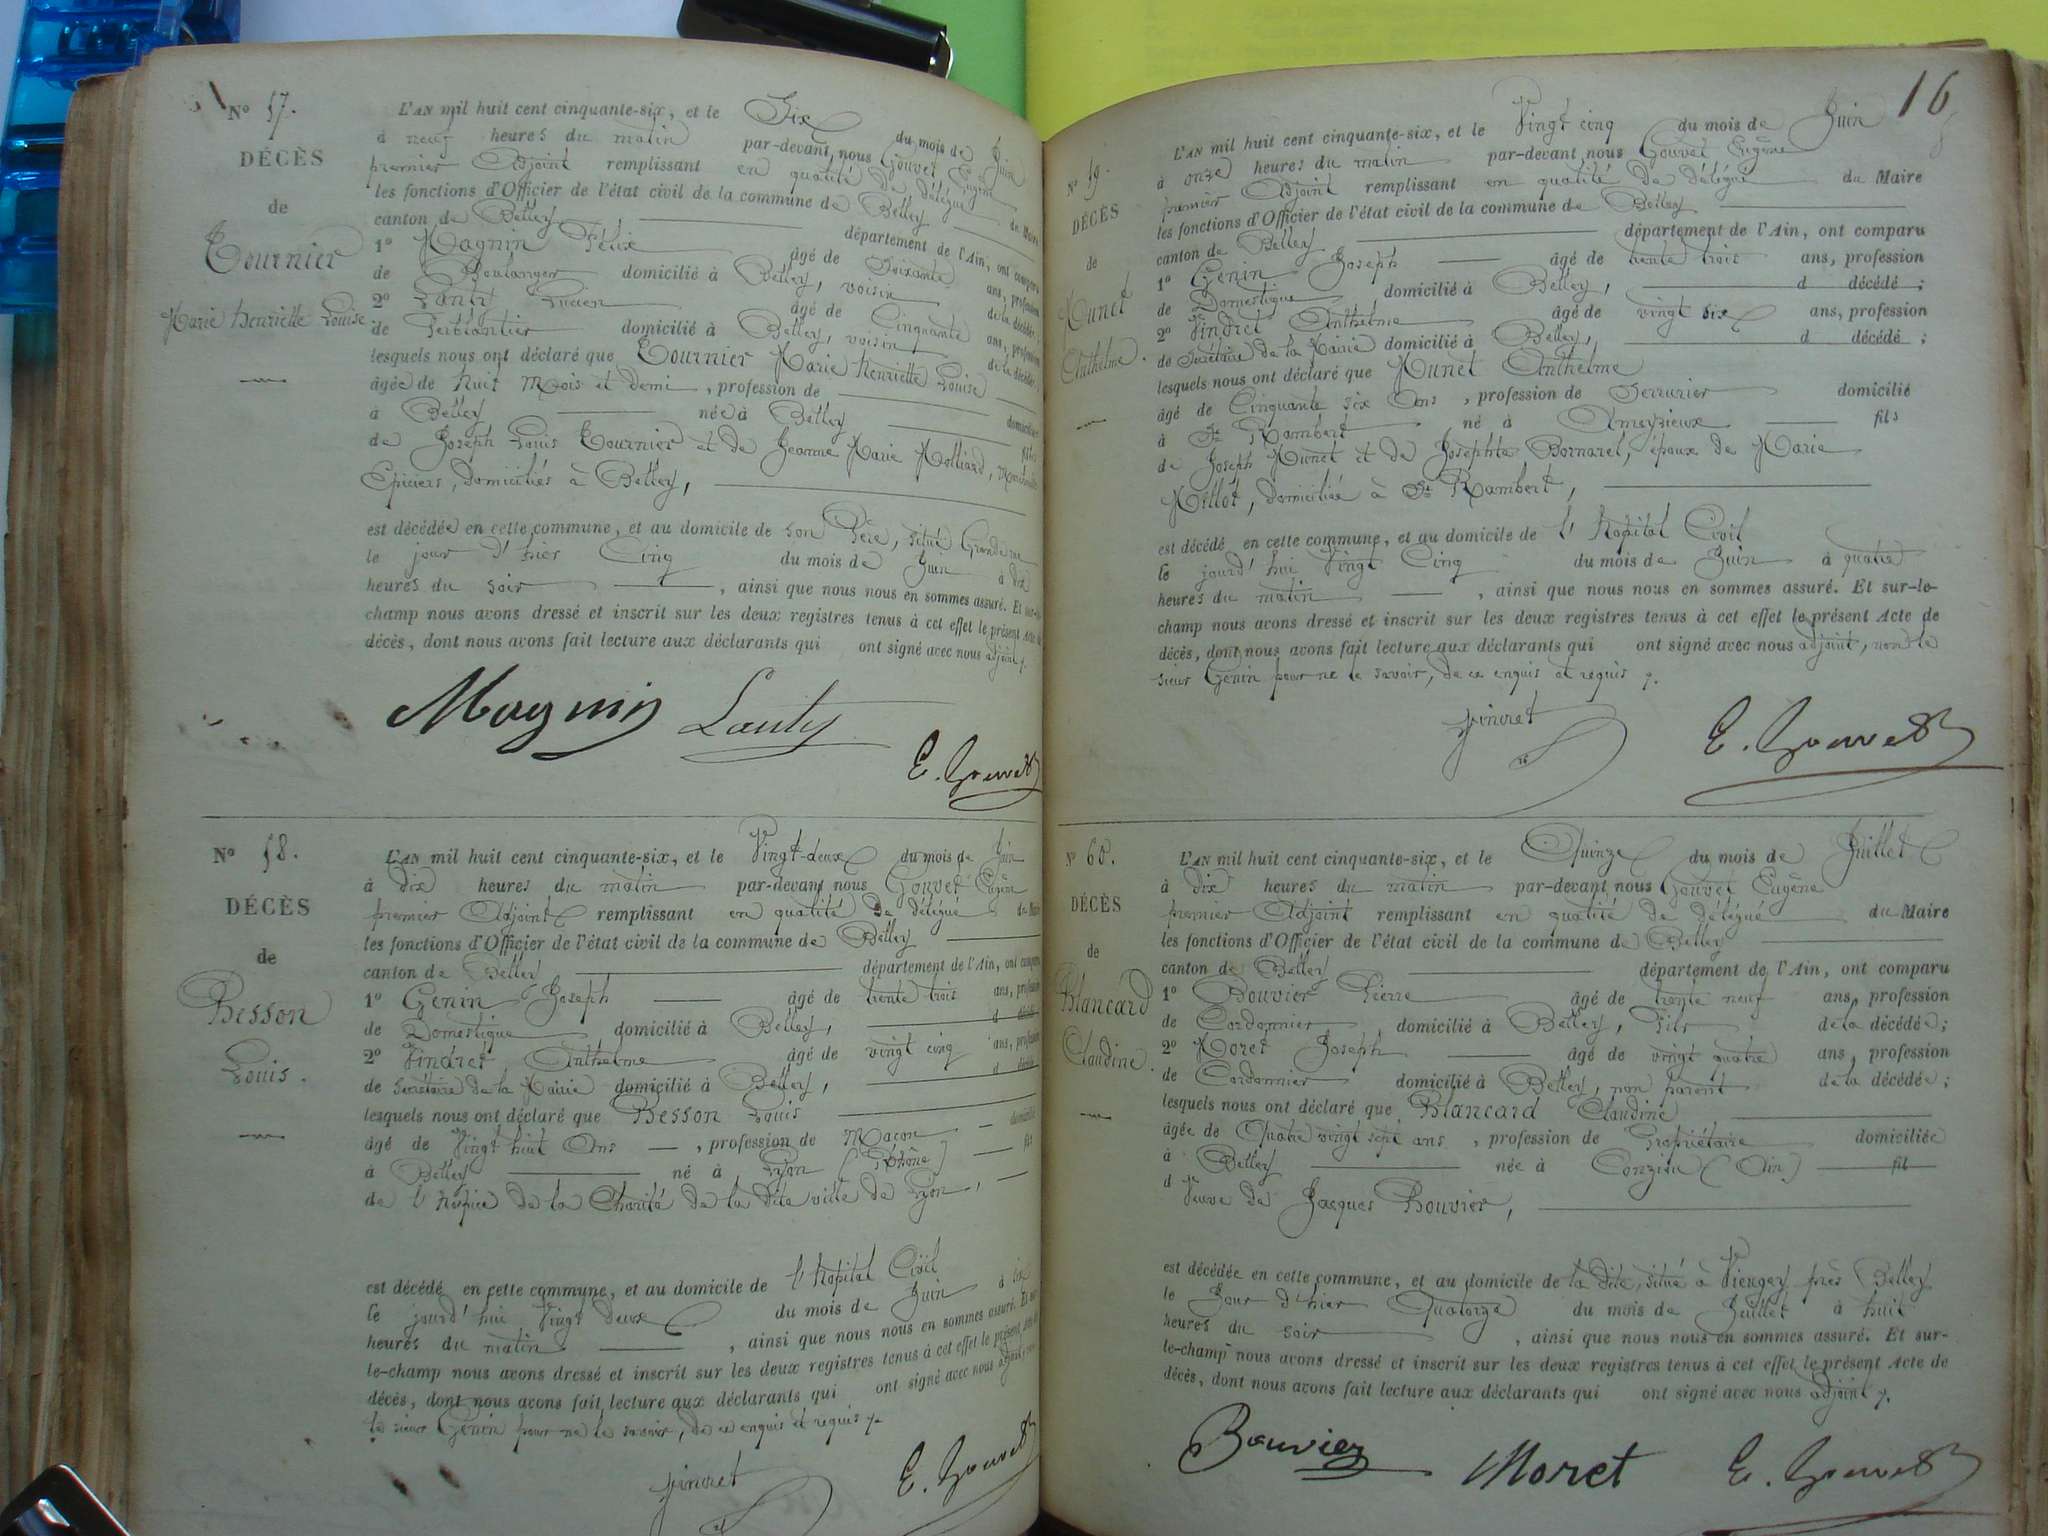 Nº 57.
DÉCÈS
de
Tournier
Marie Henriette Louise
L'AN mil huit cent cinquante-six, et le Six du mois de Juin
à neuf heures du matin par-devant nous Gouvet Eugène
premier Adjoint remplissant en qualité de délégué du Maire
les fonctions d'Officier de l'état civil de la commune de Belley
canton de Belley département de l'Ain, ont comparu
1º Magnin Félix âgé de Soixante ans, profession
de Boulanger domicilié à Belley, voisin de la décédée;
2º Lanty Lucien âgé de Cinquante ans, profession
de Ferblantier domicilié à Belley, voisin de la décédée;
lesquels nous ont déclaré que Tournier Marie henriette Louise
âgée de huit Mois et demi, profession de domiciliée
à Belley née à Belley fille
de Joseph Louis Tournier et de Jeanne Marie Molliard,
Epiciers, domiciliés à Belley,
est décédée en cette commune, et au domicile de son Père, situé Grande rue
le jour d'hier Cinq du mois de Juin à dix
heures du soir, ainsi que nous nous en sommes assuré. Et sur-le-
champ nous avons dressé et inscrit sur les deux registres tenus à cet effet le présent Acte de
décès, dont nous avons fait lecture aux déclarants qui ont signé avec nous adjoint /.
Magnin Lanty
E. Gouvet
Nº 58.
DÉCÈS
de
Besson
Louis.
L'AN mil huit cent cinquante-six, et le Vingt-deux du mois de Juin
à dix heures du matin par-devant nous Gouvet Eugène
premier Adjoint remplissant en qualité de délégué du Maire
les fonctions d'Officier de l'état civil de la commune de Belley
canton de Belley département de l'Ain, ont comparu
1º Genin Joseph âgé de trente trois ans, profession
de Domestique domicilié à Belley, d décédé
2º Vindret Anthelme âgé de vingt cinq ans, profession
de Secrétaire de la Mairie domicilié à Belley, d décédé
lesquels nous ont déclaré que Besson Louis
âgé de Vingt huit Ans, profession de Maçon domicilié
à Belley né à Lyon (Rhône) fils
de l'hospice de la Charité de la dite ville de Lyon,
est décédé en cette commune, et au domicile de l'hopital Civil
le jourd'hui Vingt deux du mois de Juin à six
heures du matin, ainsi que nous nous en sommes assuré. Et sur-
le-champ nous avons dressé et inscrit sur les deux registres tenus à cet effet le présent Acte de
décès, dont nous avons fait lecture aux déclarants qui ont signé avec nous adjoint, non
le sieur Genin pour ne le savoir, de ce enquis et requis /.
Vindret
E. Gouvet
16
Nº 59.
DÉCÈS
de
Munet
Anthelme.
L'AN mil huit cent cinquante-six, et le Vingt cinq du mois de Juin
à onze heures du matin par-devant nous Gouvet Eugène
premier Adjoint remplissant en qualité de délégué du Maire
les fonctions d'Officier de l'état civil de la commune de Belley
canton de Belley département de l'Ain, ont comparu
1º Genin Joseph âgé de trente trois ans, profession
de Domestique domicilié à Belley, d décédé;
2º Vindret Anthelme âgé de vingt six ans, profession
de Secrétaire de la Mairie domicilié à Belley, d décédé;
lesquels nous ont déclaré que Munet Anthelme
âgé de Cinquante six Ans, profession de Serrurier domicilié
à St Rambert né à Ameyzieux fils
de Joseph Munet et de Josephte Bornarel, époux de Marie
Millot, domiciliée à St Rambert,
est décédé en cette commune, et au domicile de l'hopital Civil
le jourd'hui Vingt Cinq du mois de Juin à quatre
heures du matin, ainsi que nous nous en sommes assuré. Et sur-le-
champ nous avons dressé et inscrit sur les deux registres tenus à cet effet le présent Acte de
décès, dont nous avons fait lecture aux déclarants qui ont signé avec nous adjoint, non le
sieur Genin pour ne le savoir, de ce enquis et requis /.
Vindret E. Gouvet
Nº 60.
DÉCÈS
de
Blancard
Claudine.
L'AN mil huit cent cinquante-six, et le Quinze du mois de Juillet
à dix heures du matin par-devant nous Gouvet Eugène
premier Adjoint remplissant en qualité de délégué du Maire
les fonctions d'Officier de l'état civil de la commune de Belley
canton de Belley département de l'Ain, ont comparu
1º Bouvier Pierre âgé de trente neuf ans, profession
de Cordonnier, domicilié à Belley, fils de la décédée;
2º Moret Joseph âgé de vingt quatre ans, profession
de Cordonnier domicilié à Belley, non parent de la décédée;
lesquels nous ont déclaré que Blancard Claudine
âgée de Quatre vingt sept ans, profession de Propriétaire domiciliée
à Belley née à Conzieu (Ain) fil
d Veuve de Jacques Bouvier,
est décédée en cette commune, et au domicile de la dite, situé à Vieugey près Belley
le Jour d'hier Quatorze du mois de Juillet à huit
heures du soir, ainsi que nous nous en sommes assuré. Et sur-
le-champ nous avons dressé et inscrit sur les deux registres tenus à cet effet le présent Acte de
décès, dont nous avons fait lecture aux déclarants qui ont signé avec nous adjoint /.
Bouvier Moret E. Gouvet